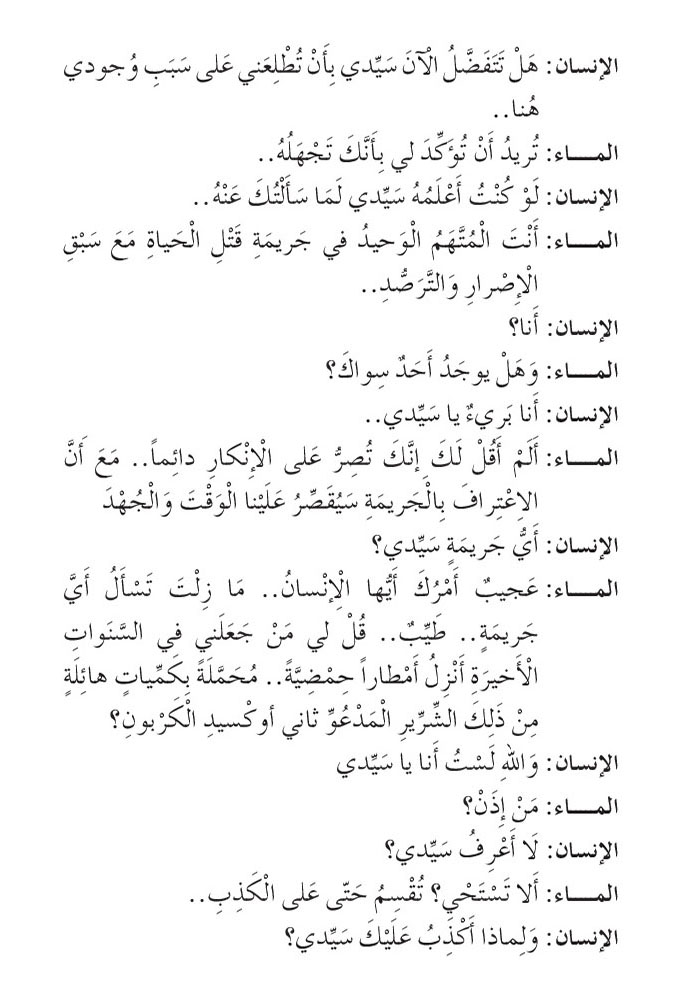 الإنسان: هَلْ تَتَفَضَّلُ الْآنَ سَيِّدي بِأَنْ تُطْلِعَني عَلى سَبَبِ وُجودي
هُنا..
المـــاء: تُريدُ أَنْ تُؤَكِّدَ لي بِأَنَّكَ تَجْهَلُهُ..
الإنسان: لَوْ كُنْتُ أَعْلَمُهُ سَيِّدي لَمَا سَأَلْتُكَ عَنْهُ..
المـــاء: أَنْتَ الْمُتَّهَمُ الْوَحيدُ في جَريمَةِ قَتْلِ الْحَياةِ مَعَ سَبْقِ
الْإِصْرارِ وَالتَّرَصُّدِ..
الإنسان: أَنا؟
المـــاء: وَهَلْ يوجَدُ أَحَدٌ سِواكَ؟
الإنسان: أَنا بَريءٌ يا سَيِّدي..
المـــاء: أَلَمْ أَقُلْ لَكَ إِنَّكَ تُصِرُّ عَلى الْإِنْكارِ دائِماً.. مَعَ أَنَّ
الاِعْتِرافَ بِالْجَريمَةِ سَيُقَصِّرُ عَلَيْنا الْوَقْتَ وَالْجُهْدَ
الإنسان: أَيُّ جَريمَةٍ سَيِّدي؟
المـــاء: عَجيبٌ أَمْرُكَ أَيُّها الْإنْسانُ.. مَا زِلْتَ تَسْأَلُ أَيَّ
جَريمَةٍ.. طَيِّبٌ.. قُلْ لي مَنْ جَعَلَني في السَّنَواتِ
الْأَخيرَةِ أَنْزِلُ أَمْطاراً حِمْضِيَّةً.. مُحَمَّلَةً بِكَمِّياتٍ هائِلَةٍ
مِنْ ذَلِكَ الشِّرِّيرِ الْمَدْعُوِّ ثاني أوكْسيدِ الْكَرْبونِ؟
الإنسان: وَاللهِ لَسْتُ أَنا يا سَيِّدي
المـــاء: مَنْ إِذَنْ؟
الإنسان: لَا أَعْرِفُ سَيِّدي؟
المـــاء: أَلا تَسْتَحْيِ؟ تُقْسِمُ حَتّى عَلى الْكَذِبِ..
الإنسان: وَلِماذا أَكْذِبُ عَلَيْكَ سَيِّدي؟